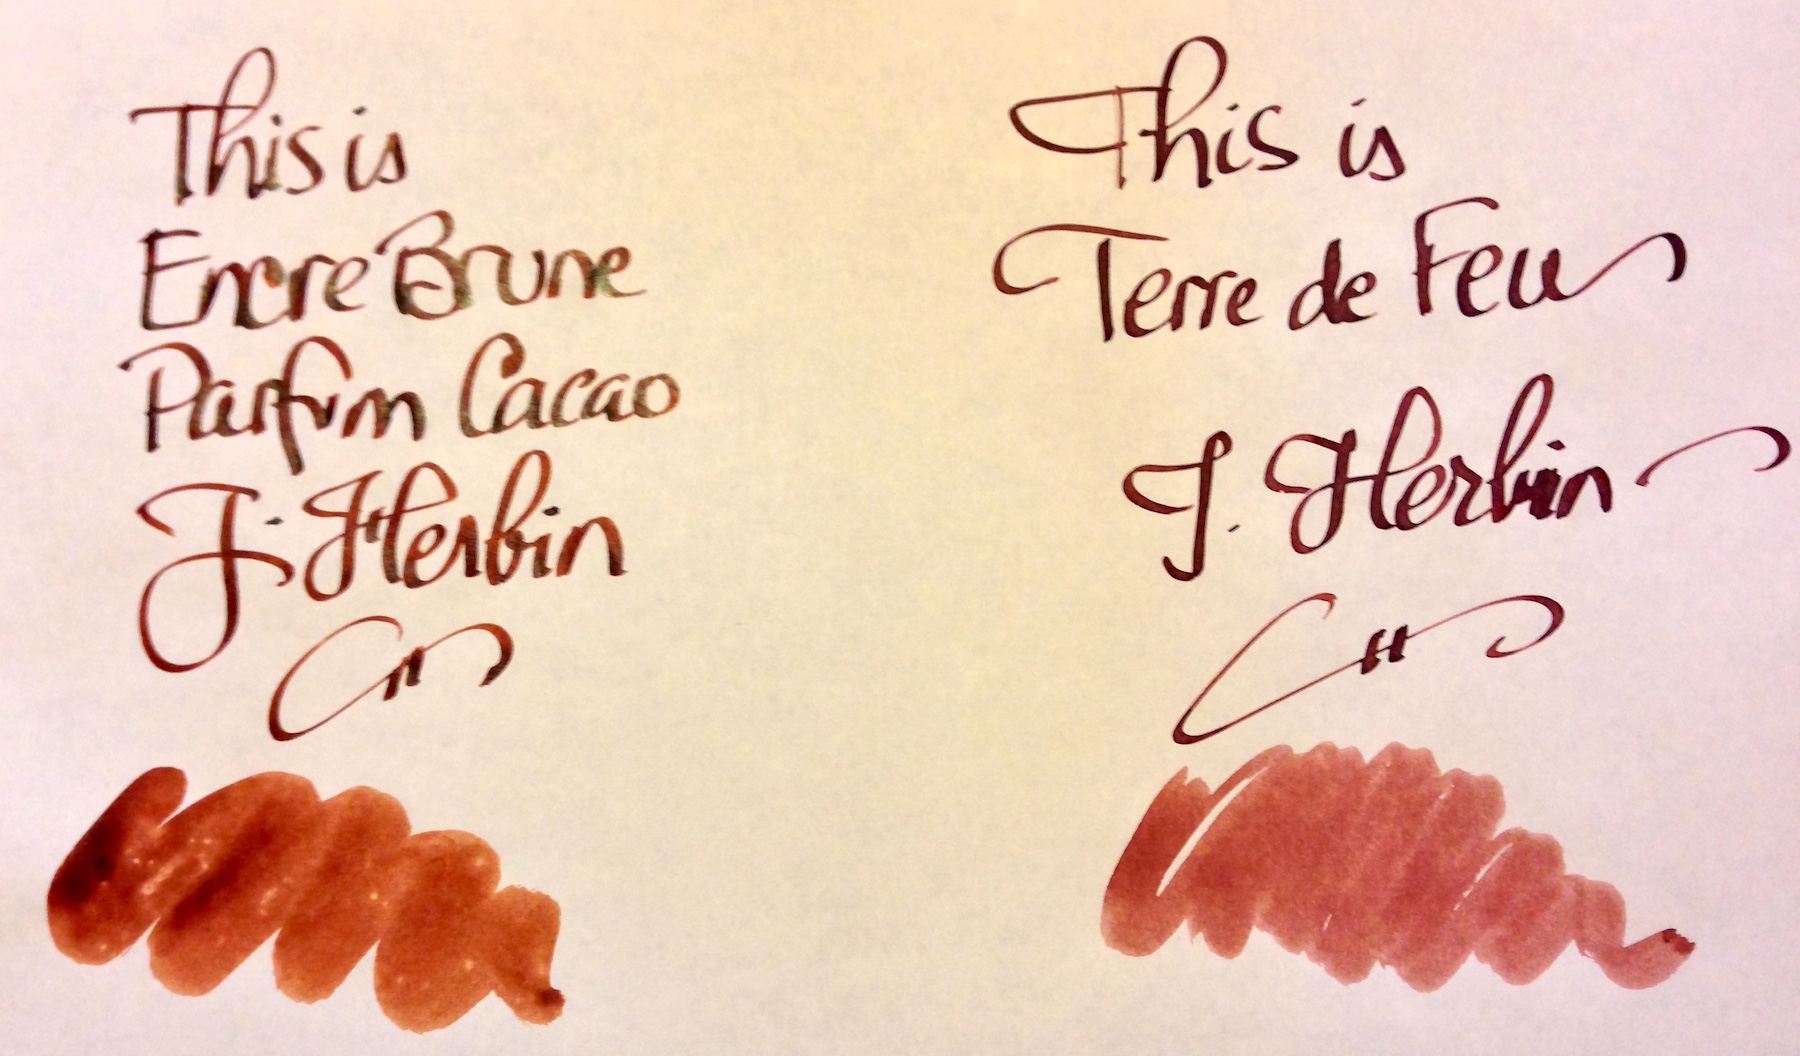 This is
Encre Brune
Parfum Cacao
J. Herbin
This is
Terre de Feu
J. Herbin